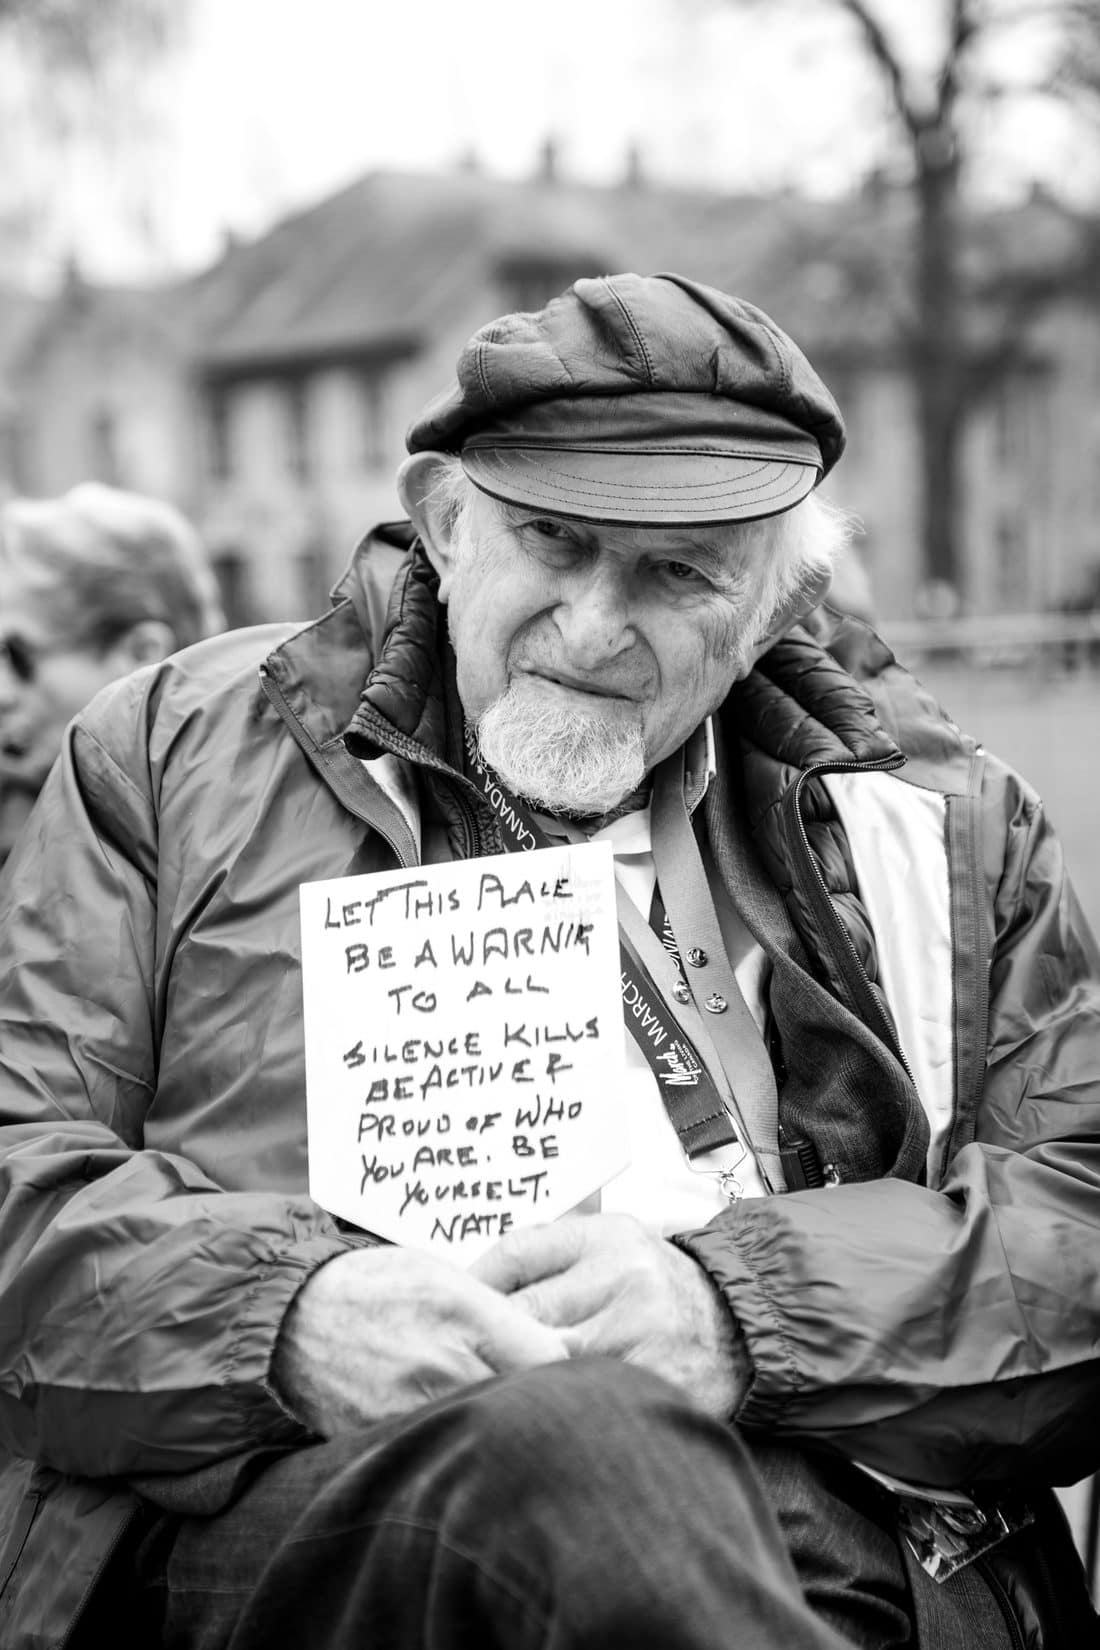 LET THIS PLACE
BE A WARNING
TO ALL
SILENCE KILLS
BE ACTIVE &
PROUD OF WHO
YOU ARE. BE
YOURSELF.
NATE
CANADA
MARCH
March
OF THE LIVING
CANADA